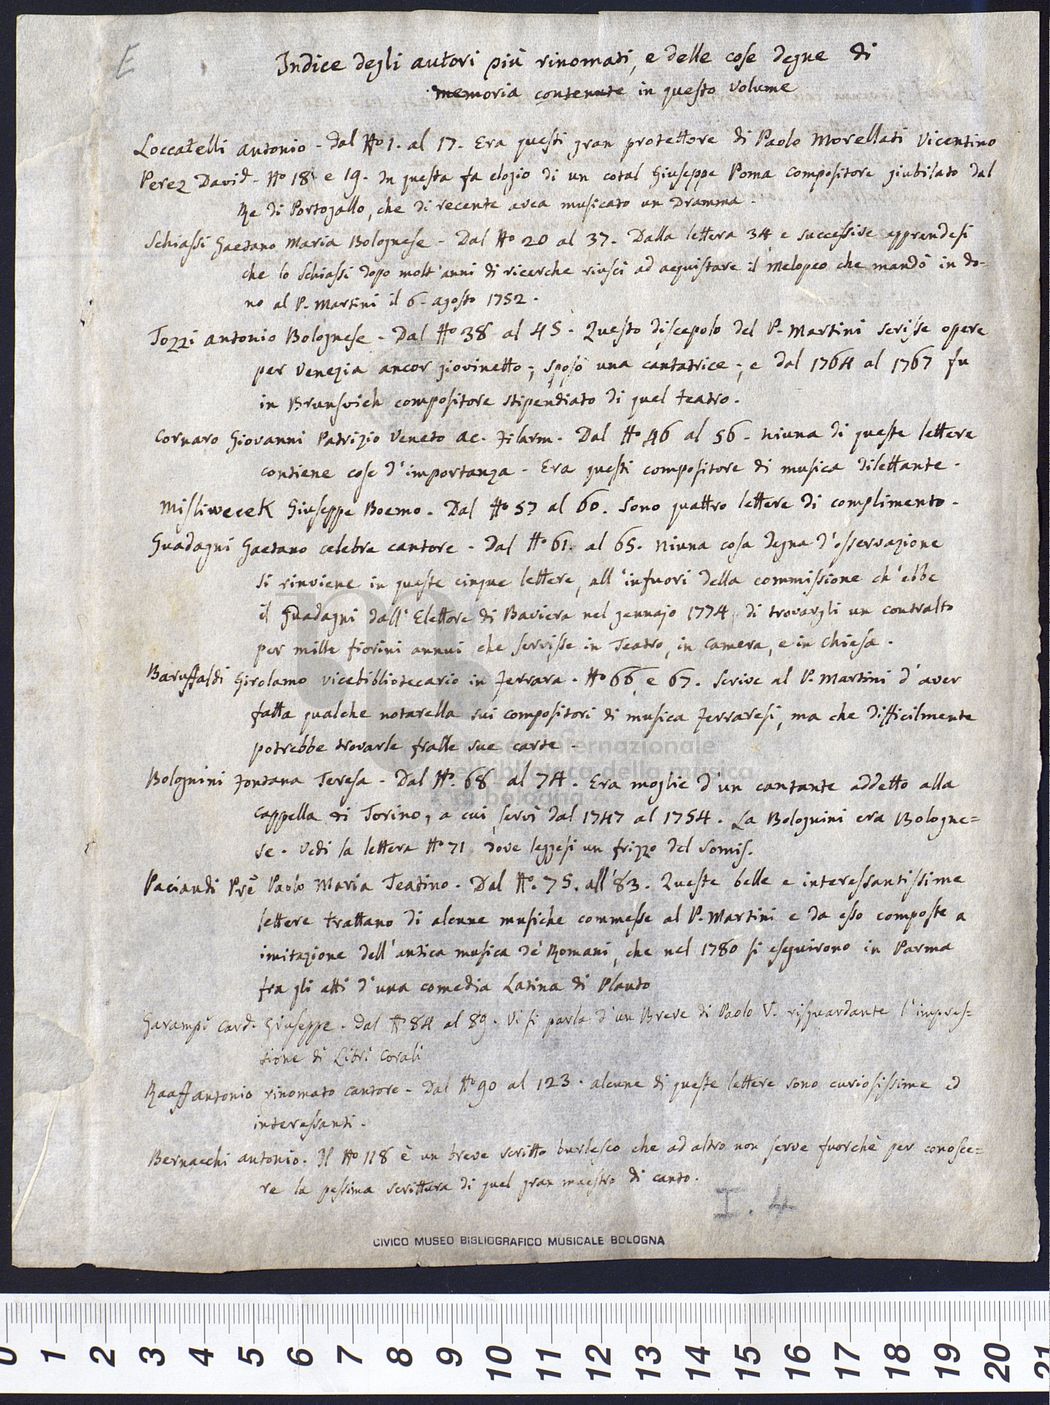 E
Indice degli autori più rinomati, e delle cose degne di
memoria contenute in questo volume
Loccatelli Antonio - Dal Nº 1. al 17. Era questi gran protettore di Paolo Morellati Vicentino
Perez David - Nº 18 e 19. In questa fa elogio di un cotal Giuseppe Poma compositore giubilato dal
Re di Portogallo, che di recente avea musicato un Dramma -
Schiassi Gaetano Maria Bolognese - Dal Nº 20 al 37. Dalla lettera 34 e successive apprendesi
che lo Schiassi dopo molt'anni di ricerche riuscì ad acquistare il Melopeo che mandò in do-
no al P. Martini il 6. agosto 1752 -
Tozzi Antonio Bolognese - Dal Nº 38 al 45 - Questo discepolo del P. Martini scrisse opere
per Venezia ancor giovinetto; sposò una cantatrice; e dal 1764 al 1767 fu
in Brunsvich compositore stipendiato di quel teatro.
Cornaro Giovanni Patrizio Veneto Ac. Filarm. Dal Nº 46 al 56 - Niuna di queste lettere
contiene cose d'importanza - Era questi compositore di musica dilettante -
Misliwecek Giuseppe Boemo - Dal Nº 57 al 60. Sono quattro lettere di complimento -
Guadagni Gaetano celebre cantore - Dal Nº 61. al 65. Niuna cosa degna d'osservazione
si rinviene in queste cinque lettere, all'infuori della commissione ch'ebbe
il Guadagni dall'Elettore di Baviera nel gennajo 1774, di trovargli un contralto
per mille fiorini annui che servisse in Teatro, in Camera, e in Chiesa -
Baruffaldi Girolamo vicebibliotecario in Ferrara - Nº 66 e 67. Scrive al P. Martini d'aver
fatta qualche notarella sui compositori di musica Ferraresi, ma che difficilmente
potrebbe trovarle fralle sue carte -
museo internazionale
e biblioteca della musica
di bologna
Bolognini Fontana Teresa - Dal Nº 68 al 74 - Era moglie d'un cantante addetto alla
Cappella di Torino, a cui servì dal 1747 al 1754. La Bolognini era Bologne=
se - Vedi la lettera Nº 71. dove leggesi un frizzo del Somis.
Paciaudi Pre Paolo Maria Teatino - Dal Nº 75. all'83. Queste belle e interessantissime
lettere trattano di alcune musiche commesse al P. Martini e da esso composte a
imitazione dell'antica musica de' Romani, che nel 1780 si eseguirono in Parma
fra gli atti d'una comedia Latina di Plauto
Garampi Card. Giuseppe - Dal Nº 84 al 89. Vi si parla d'un Breve di Paolo V. risguardante l'impres-
sione di Libri Corali
Raaff Antonio rinomato cantore - Dal Nº 90 al 123. alcune di queste lettere sono curiosissime ed
interessanti -
Bernacchi Antonio. Il Nº 118 è un breve scritto burlesco che ad altro non serve fuorchè per conosce=
re la pessima scrittura di quel gran maestro di canto.
I. 4
CIVICO MUSEO BIBLIOGRAFICO MUSICALE BOLOGNA
0 1 2 3 4 5 6 7 8 9 10 11 12 13 14 15 16 17 18 19 20 21